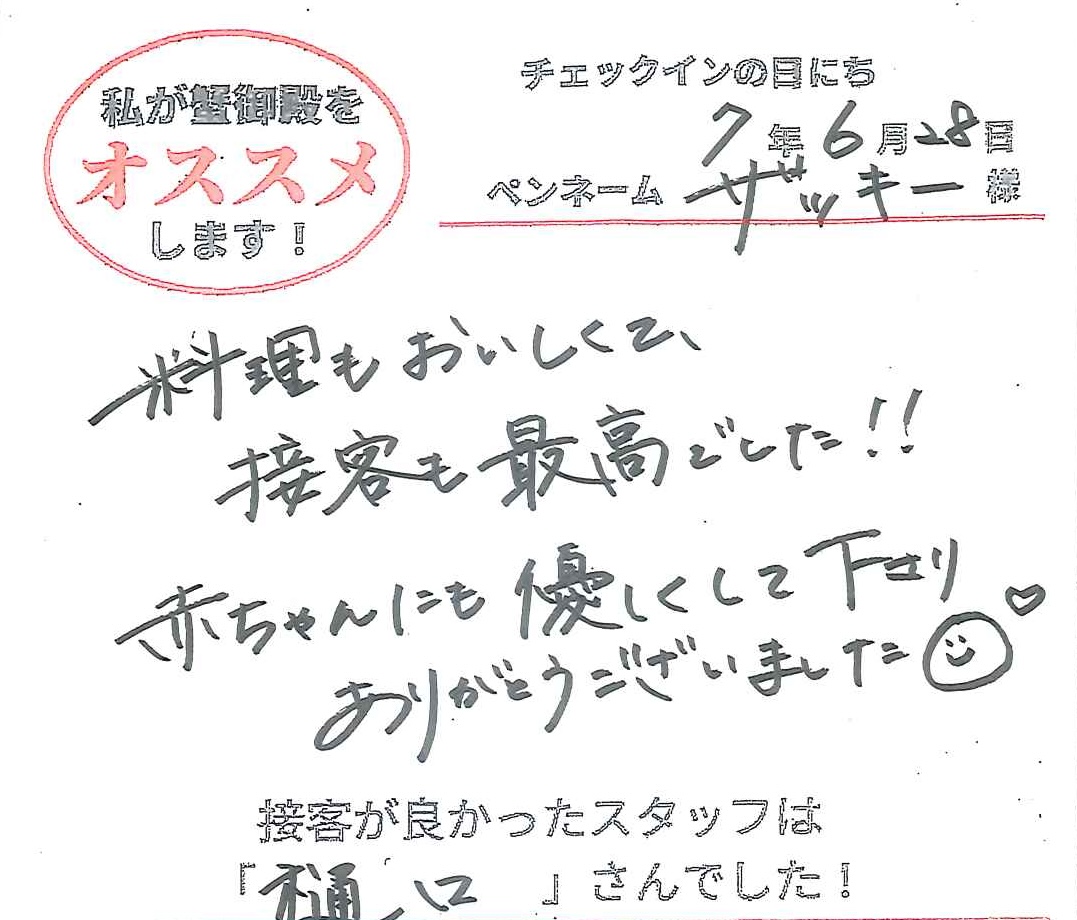 私が蟹御殿を
オススメ
します！
チェックインの日にち
7年6月28日
ペンネーム ザッキー 様
料理もおいしくて、
接客も最高でした!!
赤ちゃんにも優しくして下さり
ありがとうございました
接客が良かったスタッフは
「樋口」さんでした！